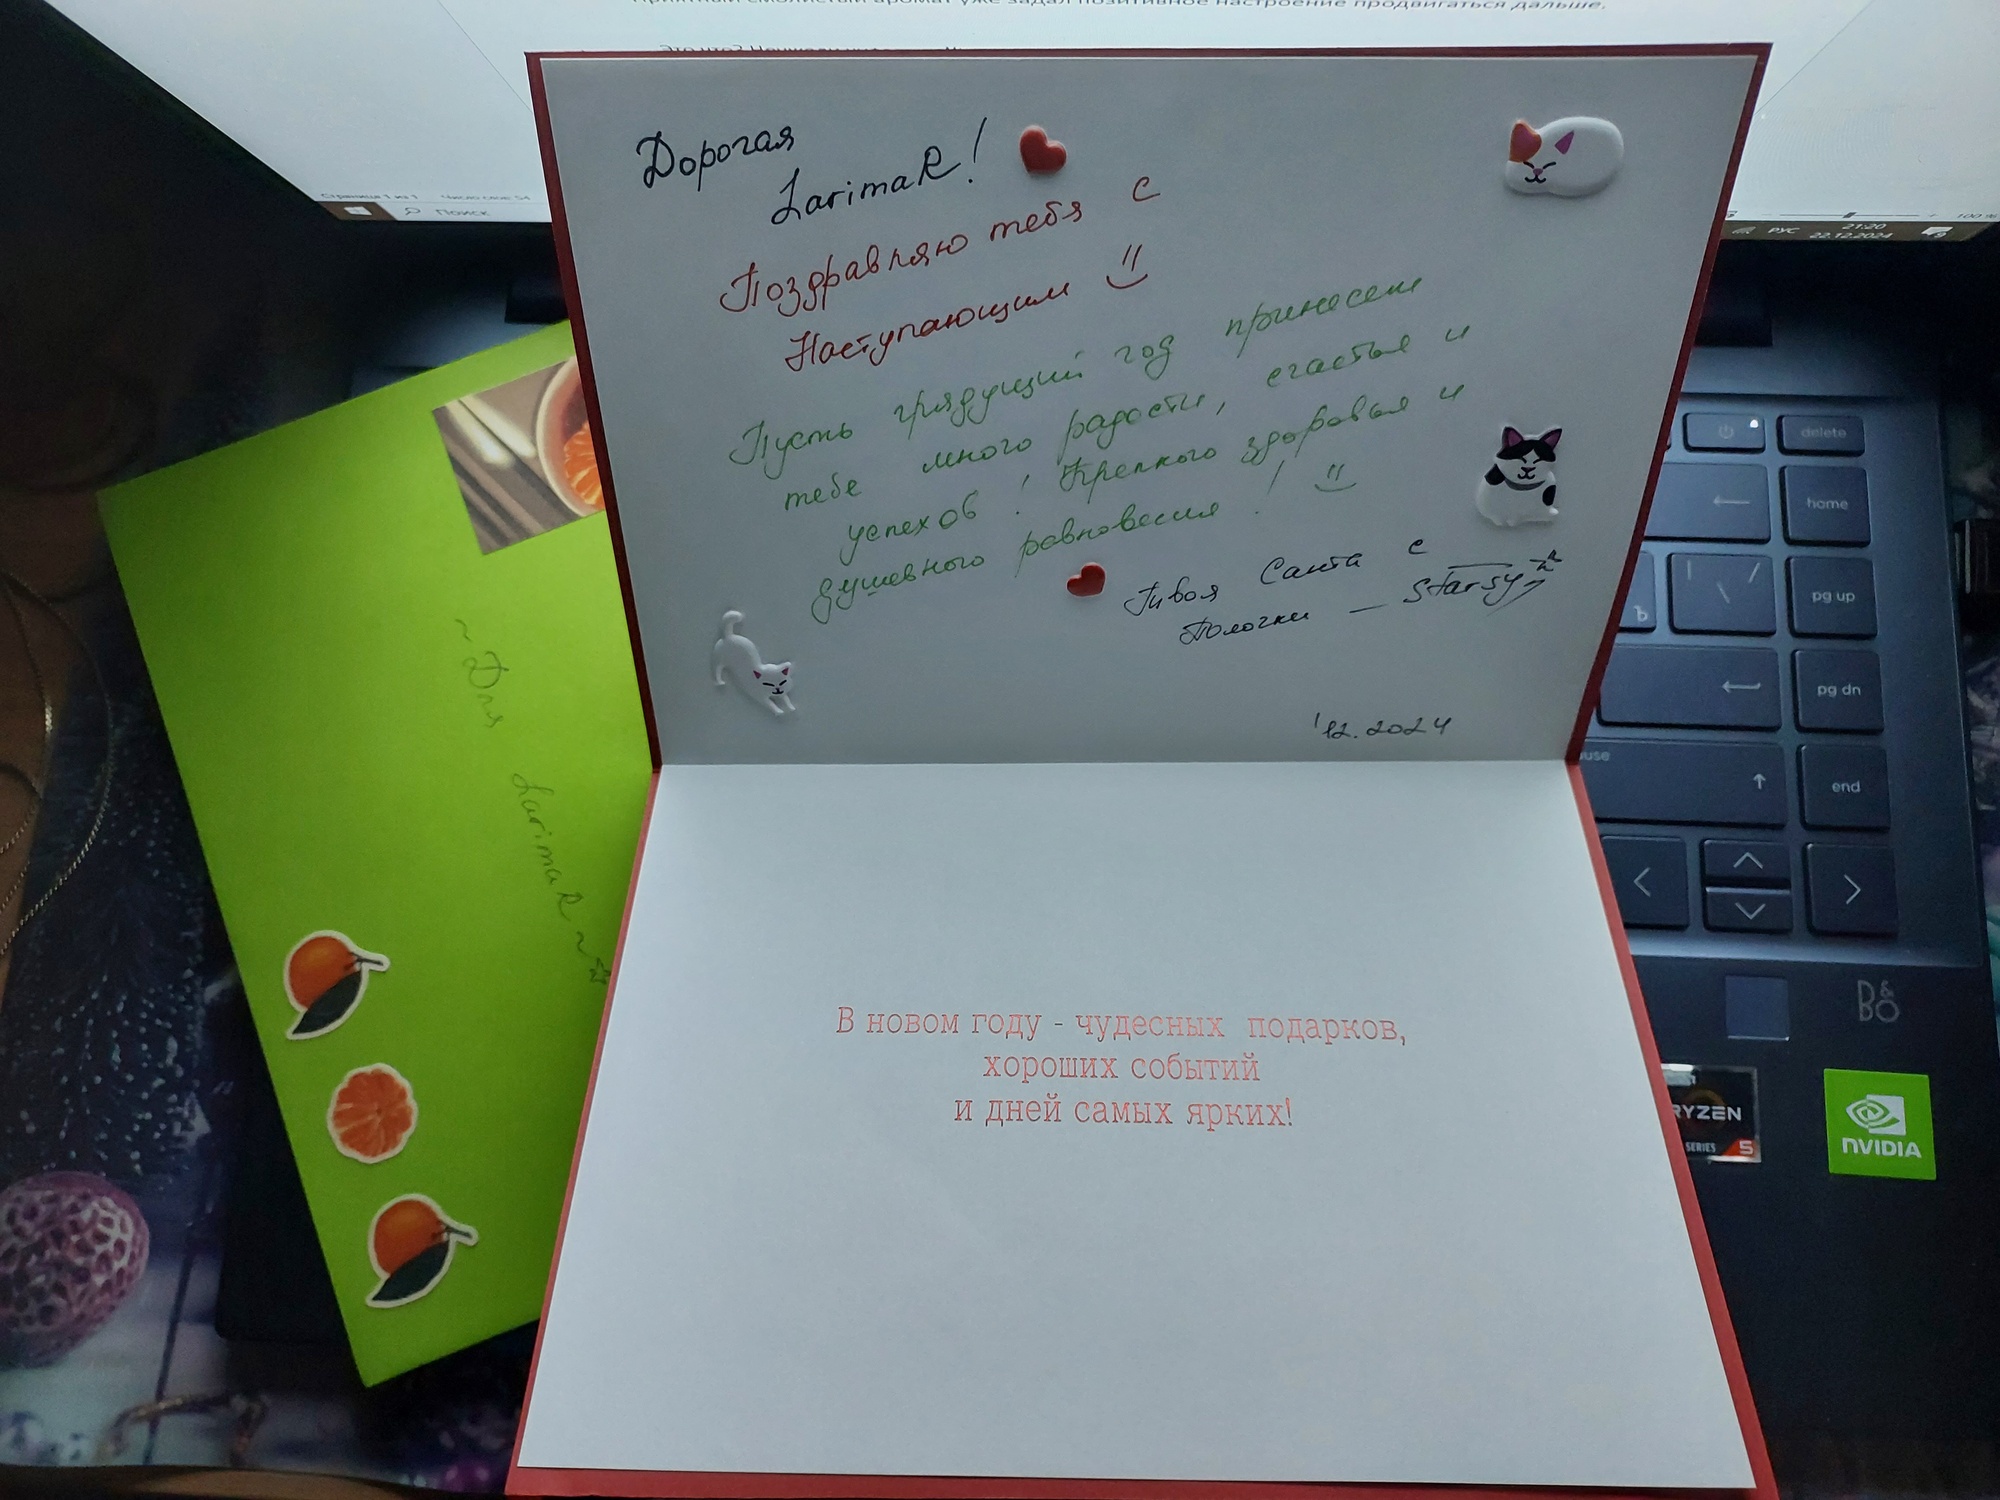 Приятный смолистый аромат уже задал позитивное настроение продвигаться дальше.
Страница 1 из 1 Число слов: 54
Поиск
РУС
21:20
22.12.2024
100 %
Дорогая
LarimaR!
Поздравляю тебя с
Наступающим
Пусть грядущий год принесет
тебе много радости, счастья и
успехов! Крепкого здоровья и
душевного равновесия!
Твоя Санта с
Полочки — Starsy
'12.2024
~ Для LarimaR ~
В новом году - чудесных подарков,
хороших событий
и дней самых ярких!
delete
home
pg up
Ъ
pg dn
end
B&O
RYZEN
SERIES 5
NVIDIA